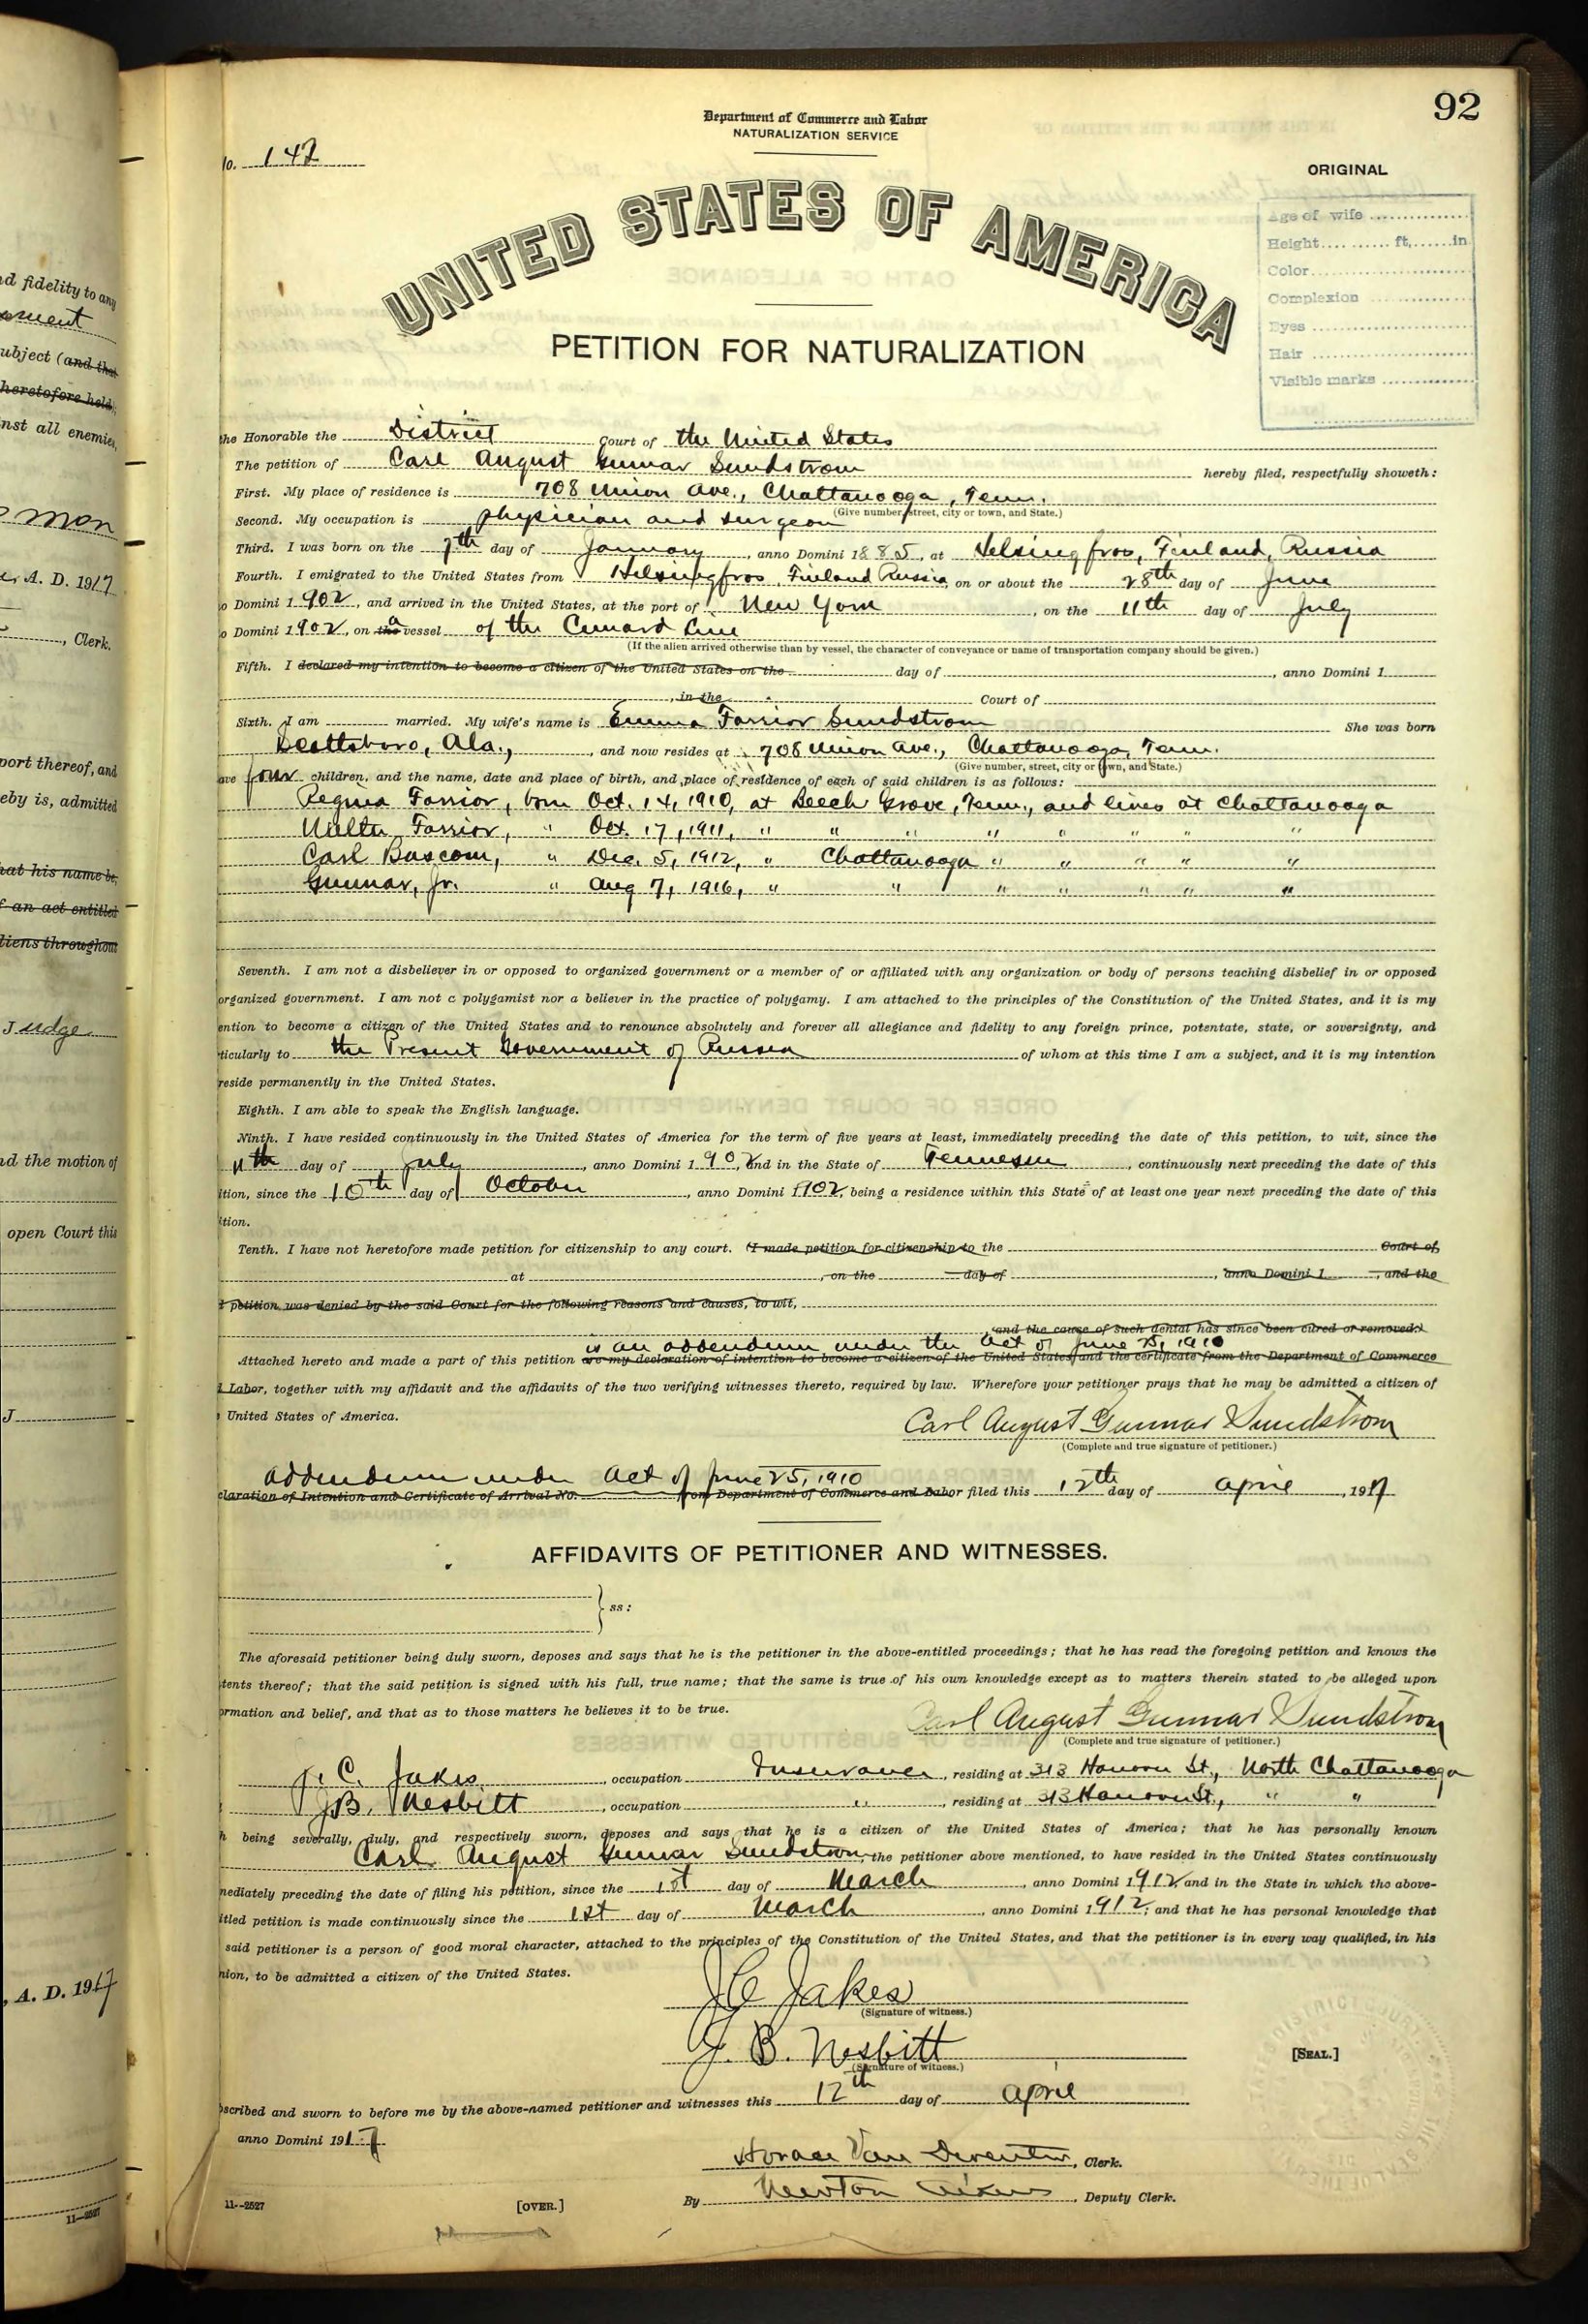 92
Department of Commerce and Labor
NATURALIZATION SERVICE
No. 142
ORIGINAL
UNITED STATES OF AMERICA
Age of wife
Height ft, in
Color
Complexion
Eyes
Hair
Visible marks
PETITION FOR NATURALIZATION
the Honorable the District Court of the United States
The petition of Carl August Gunnar Sundstrom hereby filed, respectfully showeth:
First. My place of residence is 708 Union Ave., Chattanooga, Tenn.
(Give number, street, city or town, and State.)
Second. My occupation is physician and surgeon
Third. I was born on the 7th day of January, anno Domini 1885, at Helsingfros, Finland, Russia
Fourth. I emigrated to the United States from Helsingfros, Finland Russia, on or about the 28th day of June
o Domini 1902, and arrived in the United States, at the port of New York, on the 11th day of July
o Domini 1902, on the a vessel of the Cunard Line
(If the alien arrived otherwise than by vessel, the character of conveyance or name of transportation company should be given.)
Fifth. I declared my intention to become a citizen of the United States on the day of , anno Domini 1
, in the Court of
Sixth. I am married. My wife's name is Emma Farrior Sundstrom She was born
Scottsboro, Ala., and now resides at 708 Union Ave., Chattanooga, Tenn.
(Give number, street, city or town, and State.)
ave four children, and the name, date and place of birth, and place of residence of each of said children is as follows:
Regina Farrior, born Oct. 14, 1910, at Beech Grove, Tenn., and lives at Chattanooga
Walter Farrior, " Oct. 17, 1911, " " " " " " " "
Carl Bascom, " Dec. 5, 1912, " Chattanooga " " " " "
Gunnar, Jr. " Aug 7, 1916, " " " " " " "
Seventh. I am not a disbeliever in or opposed to organized government or a member of or affiliated with any organization or body of persons teaching disbelief in or opposed
organized government. I am not a polygamist nor a believer in the practice of polygamy. I am attached to the principles of the Constitution of the United States, and it is my
ention to become a citizen of the United States and to renounce absolutely and forever all allegiance and fidelity to any foreign prince, potentate, state, or sovereignty, and
ticularly to the Present Government of Russia of whom at this time I am a subject, and it is my intention
reside permanently in the United States.
Eighth. I am able to speak the English language.
Ninth. I have resided continuously in the United States of America for the term of five years at least, immediately preceding the date of this petition, to wit, since the
11th day of July, anno Domini 1902, and in the State of Tennessee, continuously next preceding the date of this
ition, since the 10th day of October, anno Domini 1902, being a residence within this State of at least one year next preceding the date of this
ition.
Tenth. I have not heretofore made petition for citizenship to any court. (I made petition for citizenship to the Court of
at , on the day of , anno Domini 1 , and the
petition was denied by the said Court for the following reasons and causes, to wit,
, and the cause of such denial has since been cured or removed.)
is an addendum under the Act of June 25, 1910
Attached hereto and made a part of this petition are my declaration of intention to become a citizen of the United States and the certificate from the Department of Commerce
d Labor, together with my affidavit and the affidavits of the two verifying witnesses thereto, required by law. Wherefore your petitioner prays that he may be admitted a citizen of
United States of America.
Carl August Gunnar Sundstrom
(Complete and true signature of petitioner.)
Addendum under Act of June 25, 1910
claration of Intention and Certificate of Arrival No. from Department of Commerce and Labor filed this 12th day of April, 1917
AFFIDAVITS OF PETITIONER AND WITNESSES.
ss:
The aforesaid petitioner being duly sworn, deposes and says that he is the petitioner in the above-entitled proceedings; that he has read the foregoing petition and knows the
tents thereof; that the said petition is signed with his full, true name; that the same is true of his own knowledge except as to matters therein stated to be alleged upon
ormation and belief, and that as to those matters he believes it to be true.
Carl August Gunnar Sundstrom
(Complete and true signature of petitioner.)
J. C. Jakes, occupation Insurance, residing at 313 Hanover St., North Chattanooga
J.B. Nesbitt, occupation ", residing at 313 Hanover St., " "
h being severally, duly, and respectively sworn, deposes and says that he is a citizen of the United States of America; that he has personally known
Carl August Gunnar Sundstrom, the petitioner above mentioned, to have resided in the United States continuously
mediately preceding the date of filing his petition, since the 1st day of March, anno Domini 1912 and in the State in which the above-
itled petition is made continuously since the 1st day of March, anno Domini 1912; and that he has personal knowledge that
said petitioner is a person of good moral character, attached to the principles of the Constitution of the United States, and that the petitioner is in every way qualified, in his
nion, to be admitted a citizen of the United States.
J C Jakes
(Signature of witness.)
J. B. Nesbitt
(Signature of witness.)
[SEAL.]
bscribed and sworn to before me by the above-named petitioner and witnesses this 12th day of April
anno Domini 1917
Horace Van Deventer, Clerk.
By Newton Aikens, Deputy Clerk.
11-2527
[OVER.]
nd fidelity to any
ubject (and that
heretofore held
inst all enemies,
mon
A. D. 1917
, Clerk.
port thereof, and
eby is, admitted
hat his name be,
f an act entitled
liens throughout
Judge.
nd the motion of
open Court this
J
, A. D. 1917
11-2527